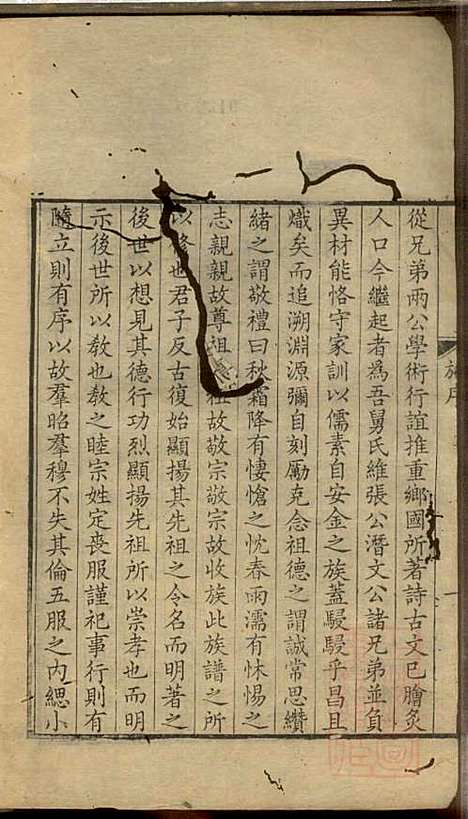 從兄弟兩公學術行誼推重鄉國所著詩古文已膾炙
人口今繼起者為吾舅氏維張公潛文公諸兄弟並負
異材能恪守家訓以儒素自安金之族蓋駸駸乎昌且
熾矣而追溯淵源彌自刻勵克念祖德之謂誠常思纘
緒之謂敬禮曰秋霜降有悽愴之忱春雨濡有怵惕之
志親親故尊祖祖故敬宗敬宗故收族此族譜之所
以修也君子反古復始顯揚其先祖之令名而明著之
後世以想見其德行功烈顯揚先祖所以崇孝也而明
示後世所以教也教之睦宗姓定喪服謹祀事行則有
隨立則有序以故羣昭羣穆不失其倫五服之內緦小